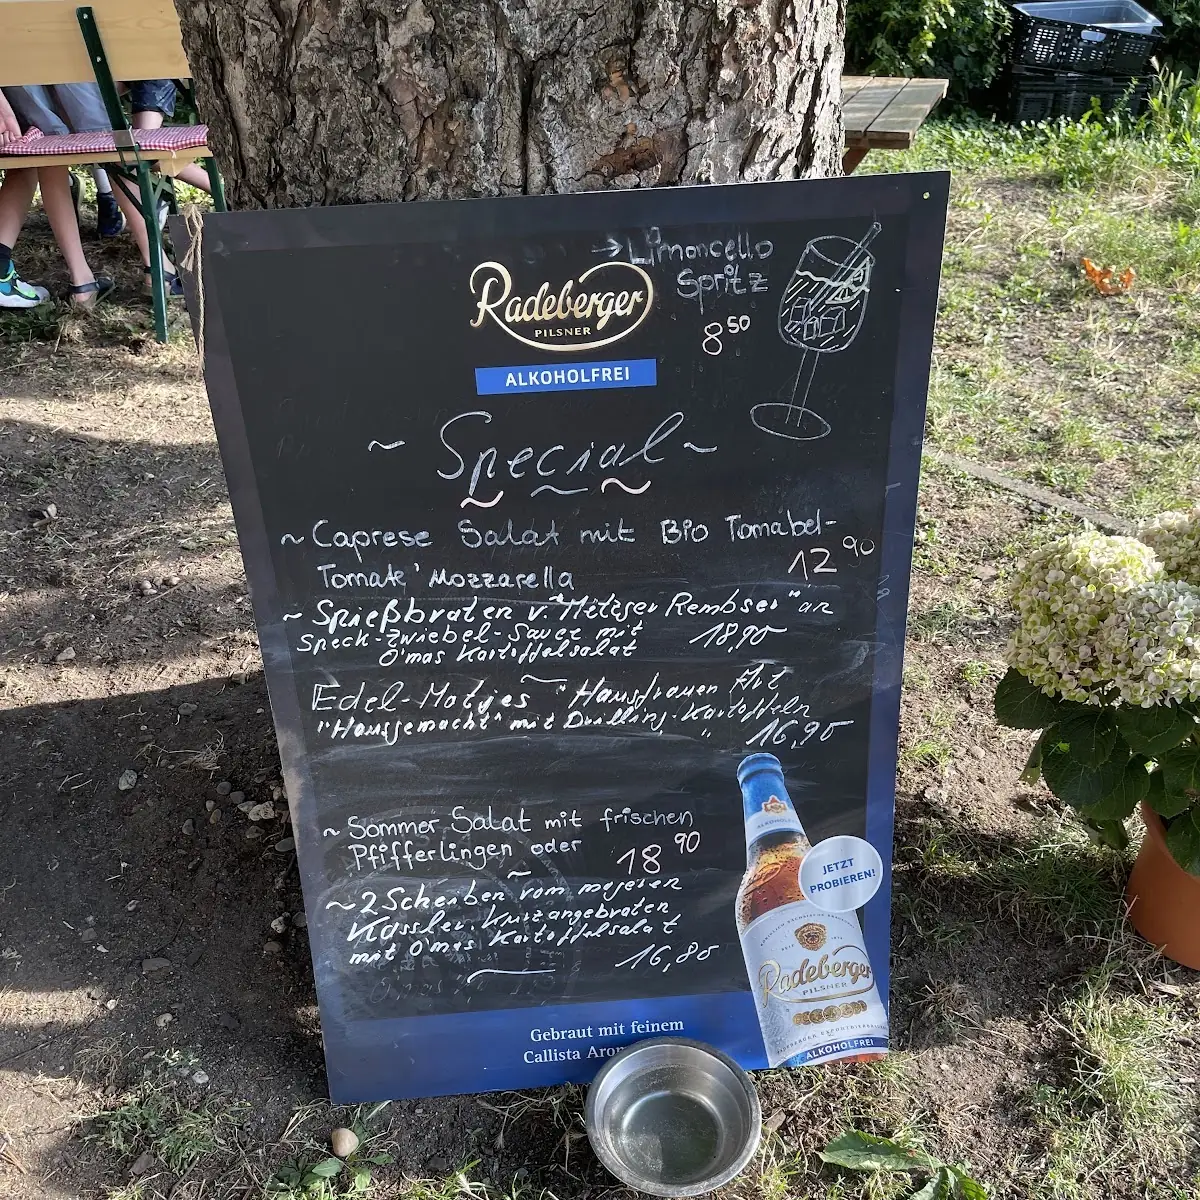 → Limoncello
Spritz
8 50
Radeberger
PILSNER
ALKOHOLFREI
~ Special ~
~ Caprese Salat mit Bio Tomabel-
Tomate' Mozzarella 12 90
~ Spießbraten v. "Metzger Rembser" an
Speck-Zwiebel-Sauce mit 18,90
O'mas Kartoffelsalat
Edel-Matjes "Hausfrauen Art
"Hausgemacht" mit Drilling-Kartoffeln
16,90
~ Sommer Salat mit frischen
Pfifferlingen oder 18 90
~ 2 Scheiben vom mageren
Kassler, kurz angebraten
mit O'mas Kartoffelsalat
16,80
JETZT
PROBIEREN!
Radeberger
PILSNER
ALKOHOLFREI
Gebraut mit feinem
Callista